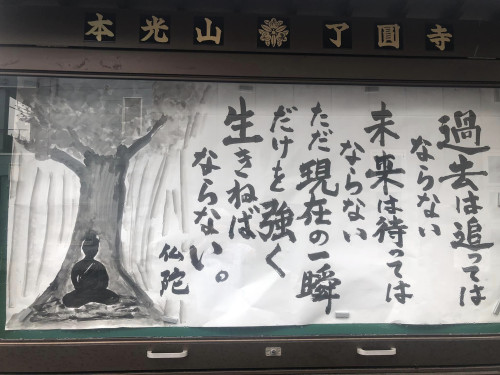 本光山 了圓寺
過去は追っては
ならない
未来は待っては
ならない
ただ現在の一瞬
だけを強く
生きねば
ならない。
仏陀